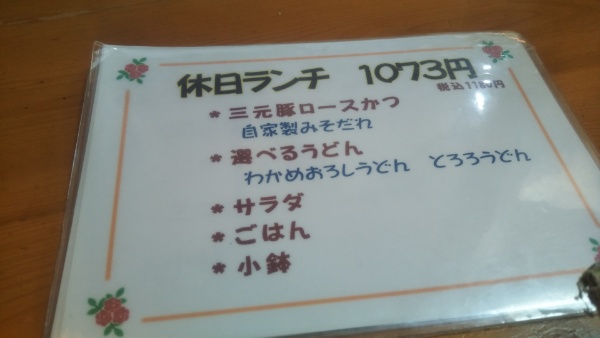 休日ランチ 1073円
税込1180円
* 三元豚ロースかつ
自家製みそだれ
* 選べるうどん
わかめおろしうどん とろろうどん
* サラダ
* ごはん
* 小鉢